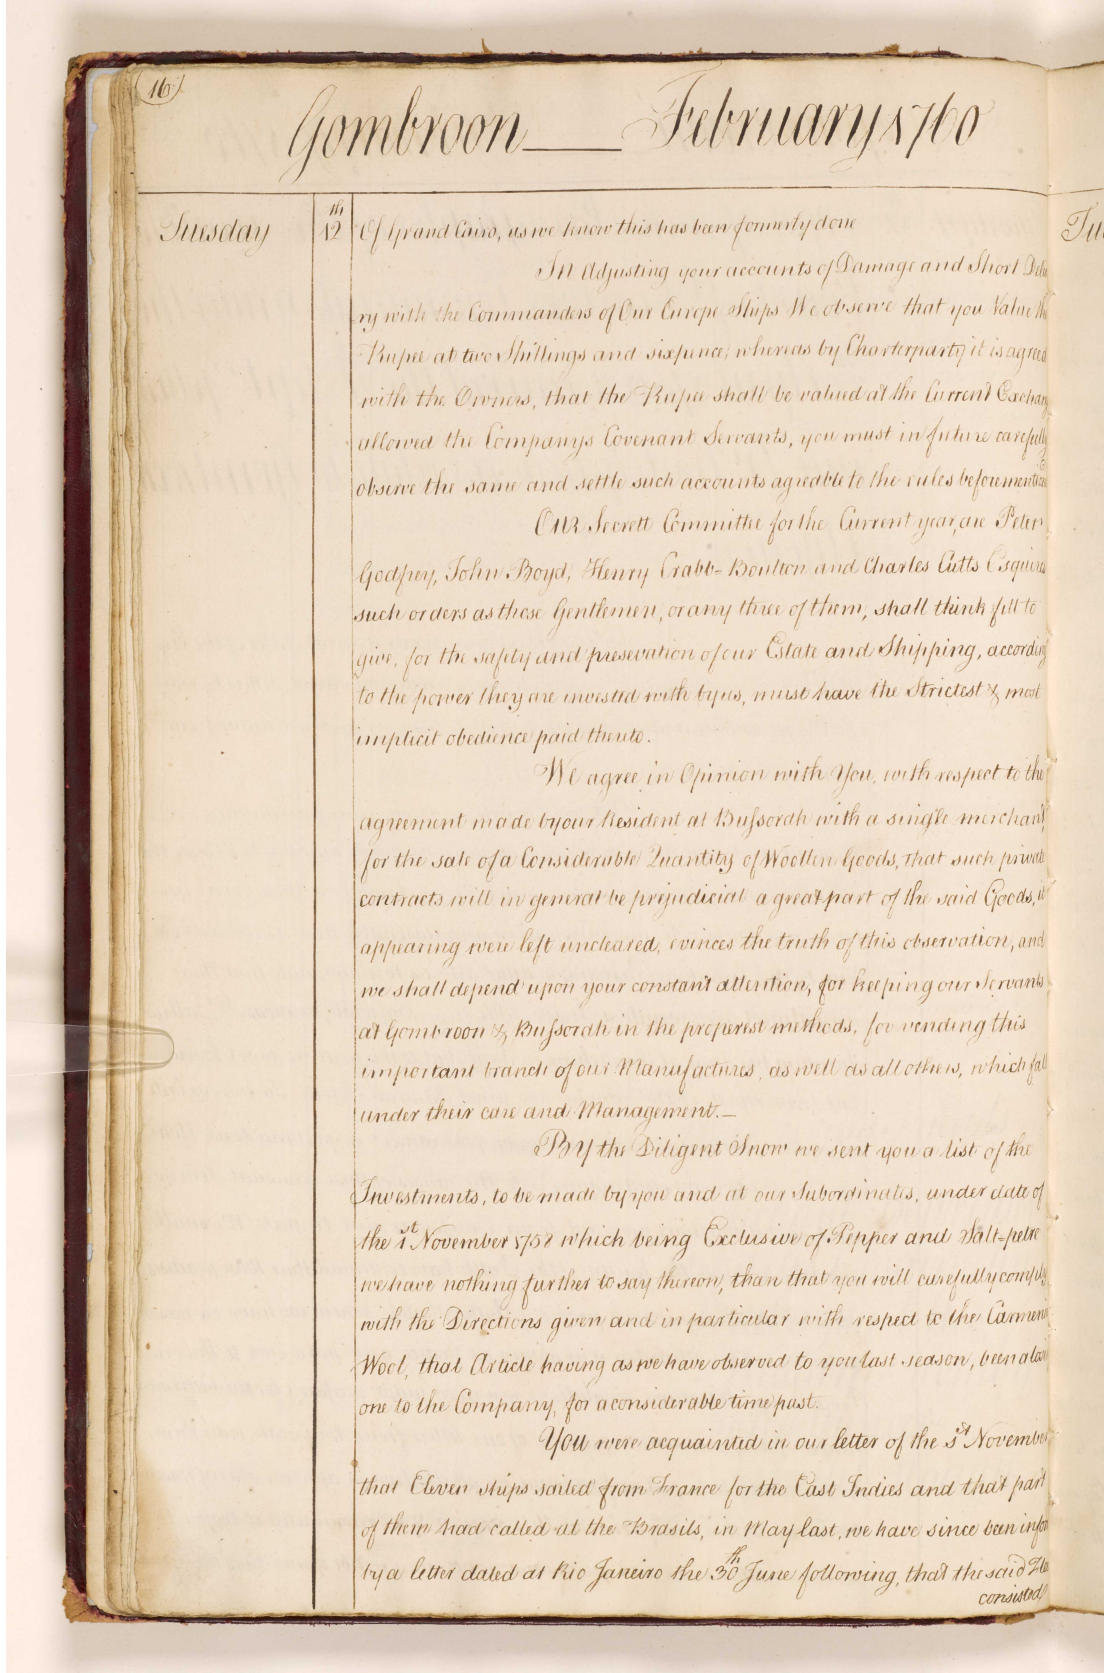 16
Gombroon February 1760
Tuesday 12th Of Grand Cairo, as we know this has been formerly done
In Adjusting your accounts of Damage and Short Deli
ry with the Commanders of Our Europe Ships We observe that you Value the
Rupee at two Shillings and sixpence, whereas by Charterparty it is agreed
with the Owners, that the Rupee shall be valued at the Current Exchang
allowed the Companys Covenant Servants, you must in future carefully
observe the same and settle such accounts agreable to the rules beforementiond
Our Secrett Committee for the Current year, are Peter
Godfrey, John Boyd, Henry Crabb=Boulton and Charles Cutts Esquires
such orders as these Gentlemen, or any three of them, shall think fitt to
give, for the safety and presevation of our Estate and Shipping, according
to the power they are invested with by us, must have the Strictest & most
implicit obedience paid thereto.
We agree in Opinion with You, with respect to the
agreement made by our Resident at Bussorah with a single merchant,
for the sale of a Considerable Quantity of Woollen Goods, that such private
contracts will in general be prejudicial a great part of the said Goods, it
appearing were left uncleared, evinces the truth of this observation, and
we shall depend upon your constant attention, for keeping our Servants
at Gombroon & Bussorah in the properest methods, for vending this
important branch of our Manufactures, as well as all others, which fall
under their care and Management.—
By the Diligent Snow we sent you a list of the
Investments, to be made by you and at our Subordinates, under date of
the 1st November 1758 which being Exclusive of Pepper and Salt=petre
we have nothing further to say thereon, than that you will carefully comply
with the Directions given and in particular with respect to the Carmenia
Wool, that Article having as we have observed to you last season, been a losing
one to the Company, for a considerable time past.
You were acquainted in our letter of the 1st November
that Eleven ships sailed from France for the East Indies and that part
of them had called at the Brasils, in May last, we have since been infor
by a letter dated at Rio Janeiro the 30th June following, that the said
consisted
Tu